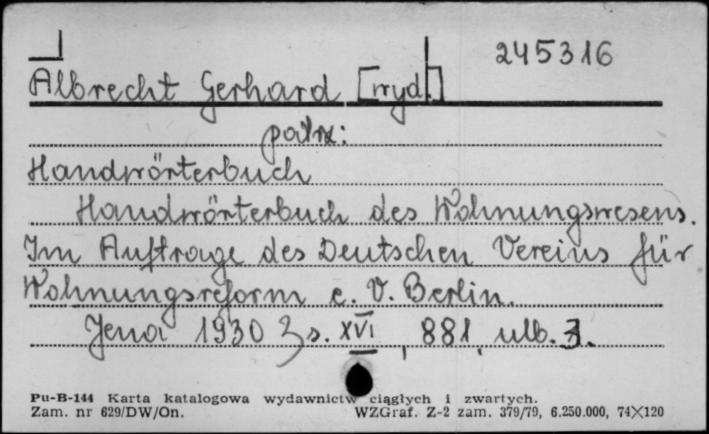 245316
Albrecht Gerhard [wyd.]
patrz:
Handwörterbuch
Handwörterbuch des Wohnungswesens.
Im Auftrage des Deutschen Vereins für
Wohnungsreform e. V. Berlin.
Jena 1930 s. XVI, 881, ulb. 3.
Pu-B-144 Karta katalogowa wydawnictw ciągłych i zwartych.
Zam. nr 629/DW/On. WZGraf. Z-2 zam. 379/79, 6.250.000, 74×120